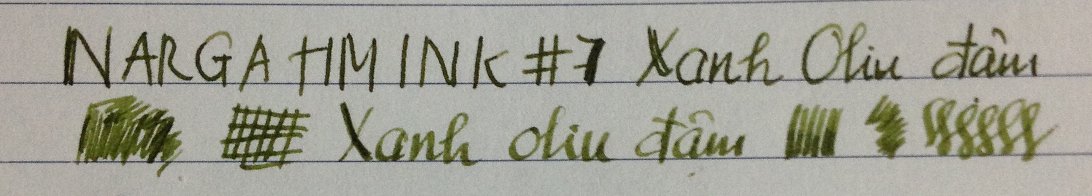 NARGA HM INK #7 Xanh Oliu đậm
Xanh oliu đậm